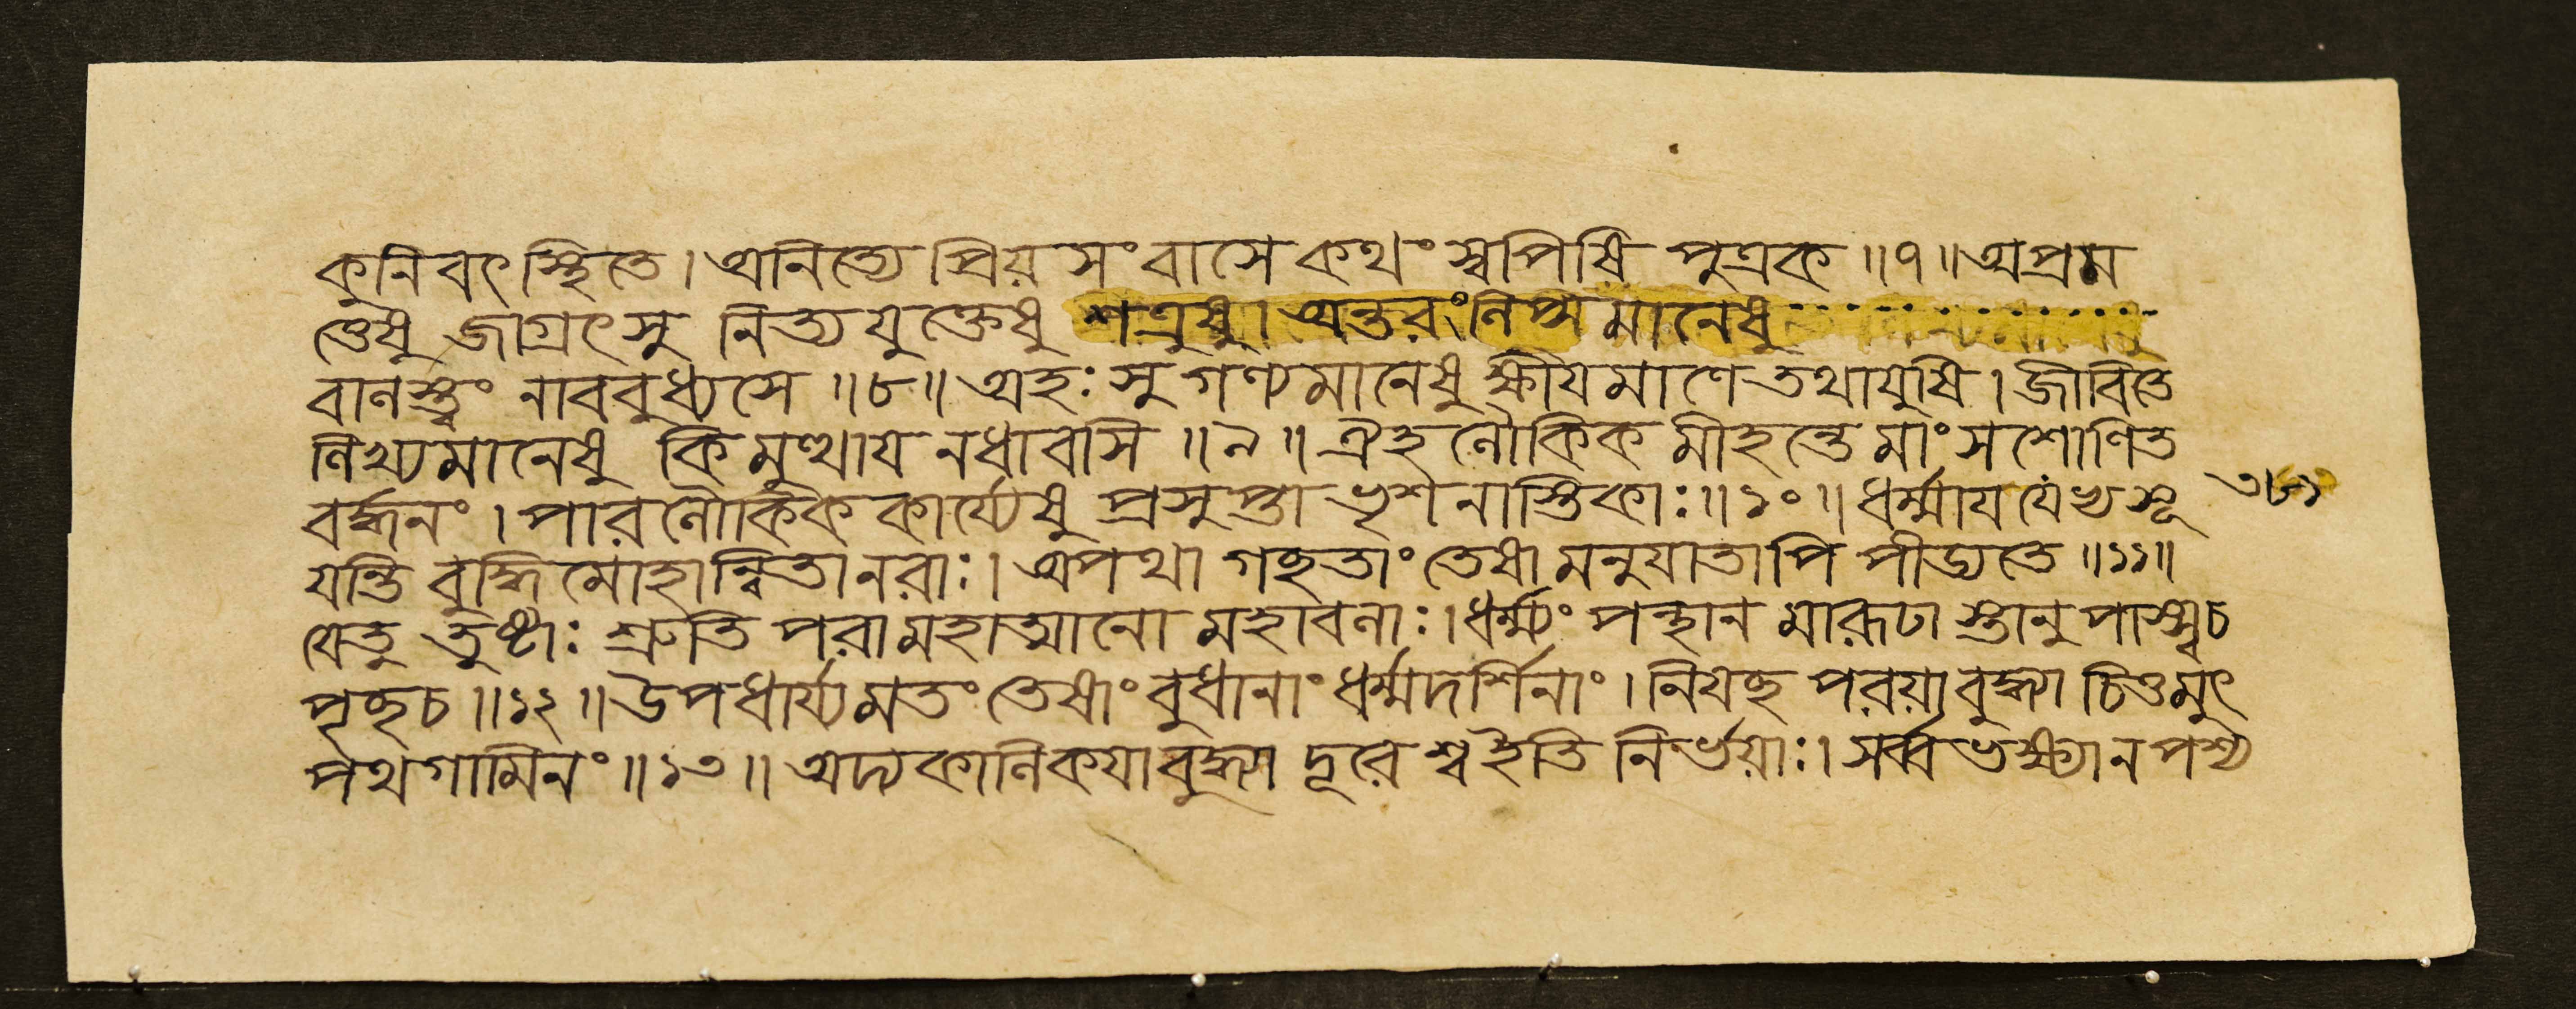 কুনিবৎস্থিতে। অনিত্যে প্রিয়সংবাসে কথং স্বপিষি পুত্রক ॥৭॥ অপ্রম
ত্তেষু জাগ্রৎসু নিত্যযুক্তেষু শত্রুষু। অন্তরং লিপ্সমানেষু
বালস্ত্বং নাববুধ্যসে ॥৮॥ অহঃসু গণ্যমানেষু ক্ষীয়মাণে তথায়ুষি। জীবিতে
লিখ্যমানেষু কিমুত্থায় ন ধাবসি ॥৯॥ ঐহলৌকিকমীহন্তে মাংসশোণিত
বর্দ্ধনং। পারলৌকিককার্য্যেষু প্রসুপ্তা ভৃশনাস্তিকাঃ ॥১০॥ ধর্ম্মায় যেভ্যসূ
৩৮১
য়ন্তি বুদ্ধিমোহান্বিতা নরাঃ। অপথা গচ্ছতাং তেষামনুযাতাপি পীড্যতে ॥১১॥
যে তু তুষ্টাঃ শ্রুতিপরা মহাত্মানো মহাবলাঃ। ধর্ম্ম্যং পন্থানমারূঢাস্তানুপাস্স্ব চ
পৃচ্ছ চ ॥১২॥ উপধার্য্য মতং তেষাং বুধানাং ধর্ম্মদর্শিনাং। নিযচ্ছ পরয়া বুদ্ধ্যা চিত্তমুৎ
পথগামিনং ॥১৩॥ অদ্যকালিকয়া বুদ্ধ্যা দূরে শ্ব ইতি নির্ভয়াঃ। সর্ব্বভক্ষ্যা ন পশ্য